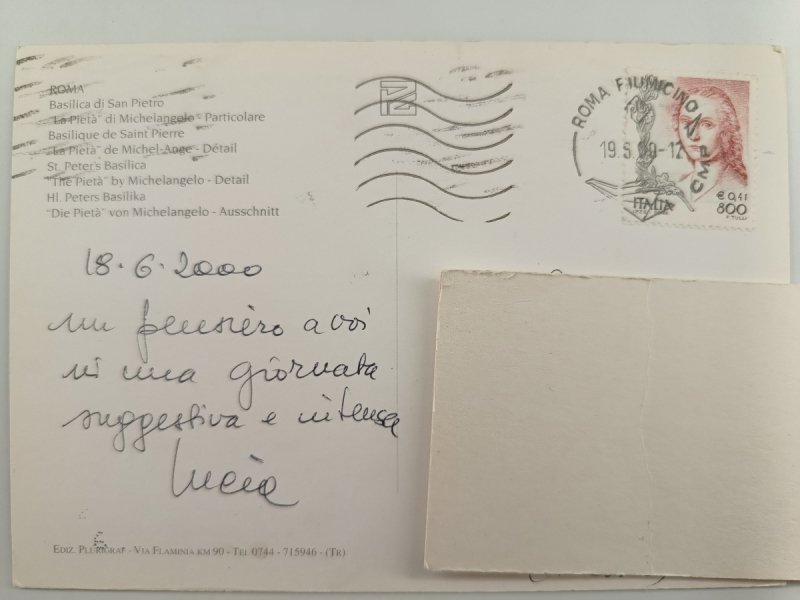 ROMA
Basilica di San Pietro
"La Pietà" di Michelangelo - Particolare
Basilique de Saint Pierre
"La Pietà" de Michel-Ange - Détail
St. Peter's Basilica
"The Pietà" by Michelangelo - Detail
Hl. Peters Basilika
"Die Pietà" von Michelangelo - Ausschnitt
ROMA FIUMICINO
CMP
19.6.00-12
€ 0,41
ITALIA 800
F. TULLI
18.6.2000
un pensiero a voi
in una giornata
suggestiva e intensa
Lucia
EDIZ. PLURIGRAF - VIA FLAMINIA KM 90 - TEL 0744 - 715946 - (TR)